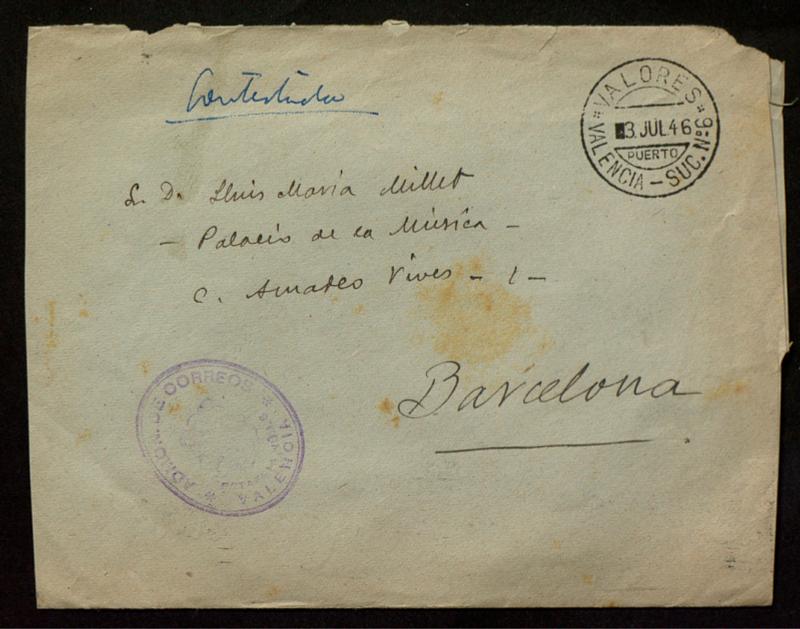 Contestada
VALORES
3 JUL 46
PUERTO
VALENCIA - SUC. Nº 9
S. D. Lluis Maria Millet
- Palacio de la Música -
C. Amadeo Vives - 1 -
Barcelona
ADMON. DE CORREOS
VALENCIA